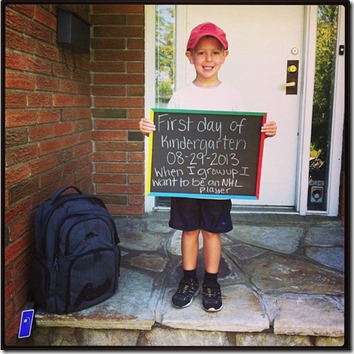 First day of
Kindergarten
08-29-2013
When I grow up I
want to be an NHL
player